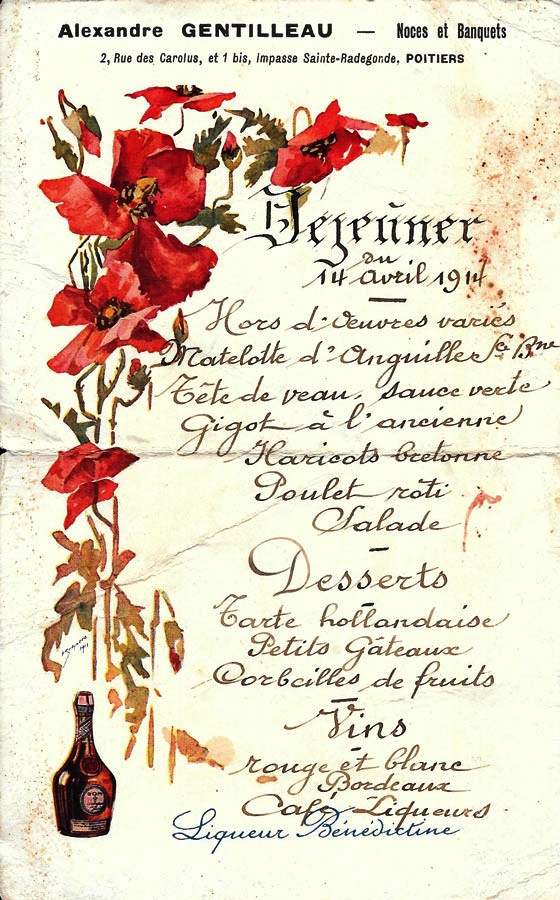 Alexandre GENTILLEAU — Noces et Banquets
2, Rue des Carolus, et 1 bis, Impasse Sainte-Radegonde, POITIERS
Dejeûner
du
14 avril 1914
Hors d'œuvres variés
Matelotte d'Anguilles Sce Bne
Tête de veau, sauce verte
Gigot à l'ancienne
Haricots bretonne
Poulet rôti
Salade
Desserts
Tarte hollandaise
Petits Gâteaux
Corbeilles de fruits
Vins
rouge et blanc
Bordeaux
Café — Liqueurs
Liqueur Bénédictine